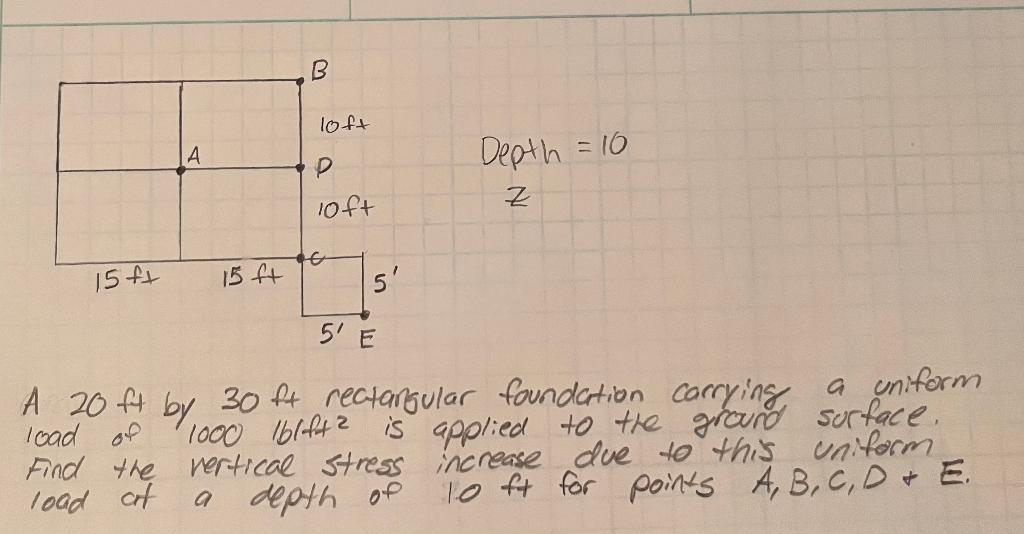 B
10ft
A
D
Depth = 10
Z
10ft
C
15 ft
15 ft
5'
5'
E
A 20 ft by 30 ft rectangular foundation carrying a uniform
load of 1000 lb/ft² is applied to the ground surface.
Find the vertical stress increase due to this uniform
load at a depth of 10 ft for points A, B, C, D + E.